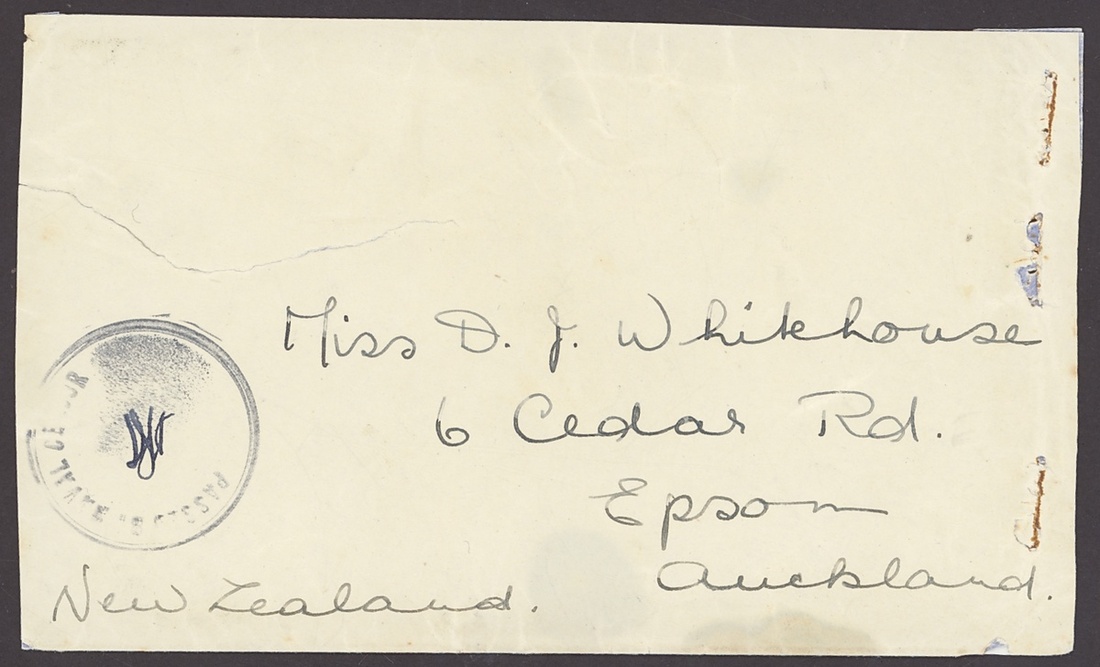 Miss D. J. Whitehouse
6 Cedar Rd.
Epsom
Auckland.
New Zealand.
PASSED BY NAVAL CENSOR